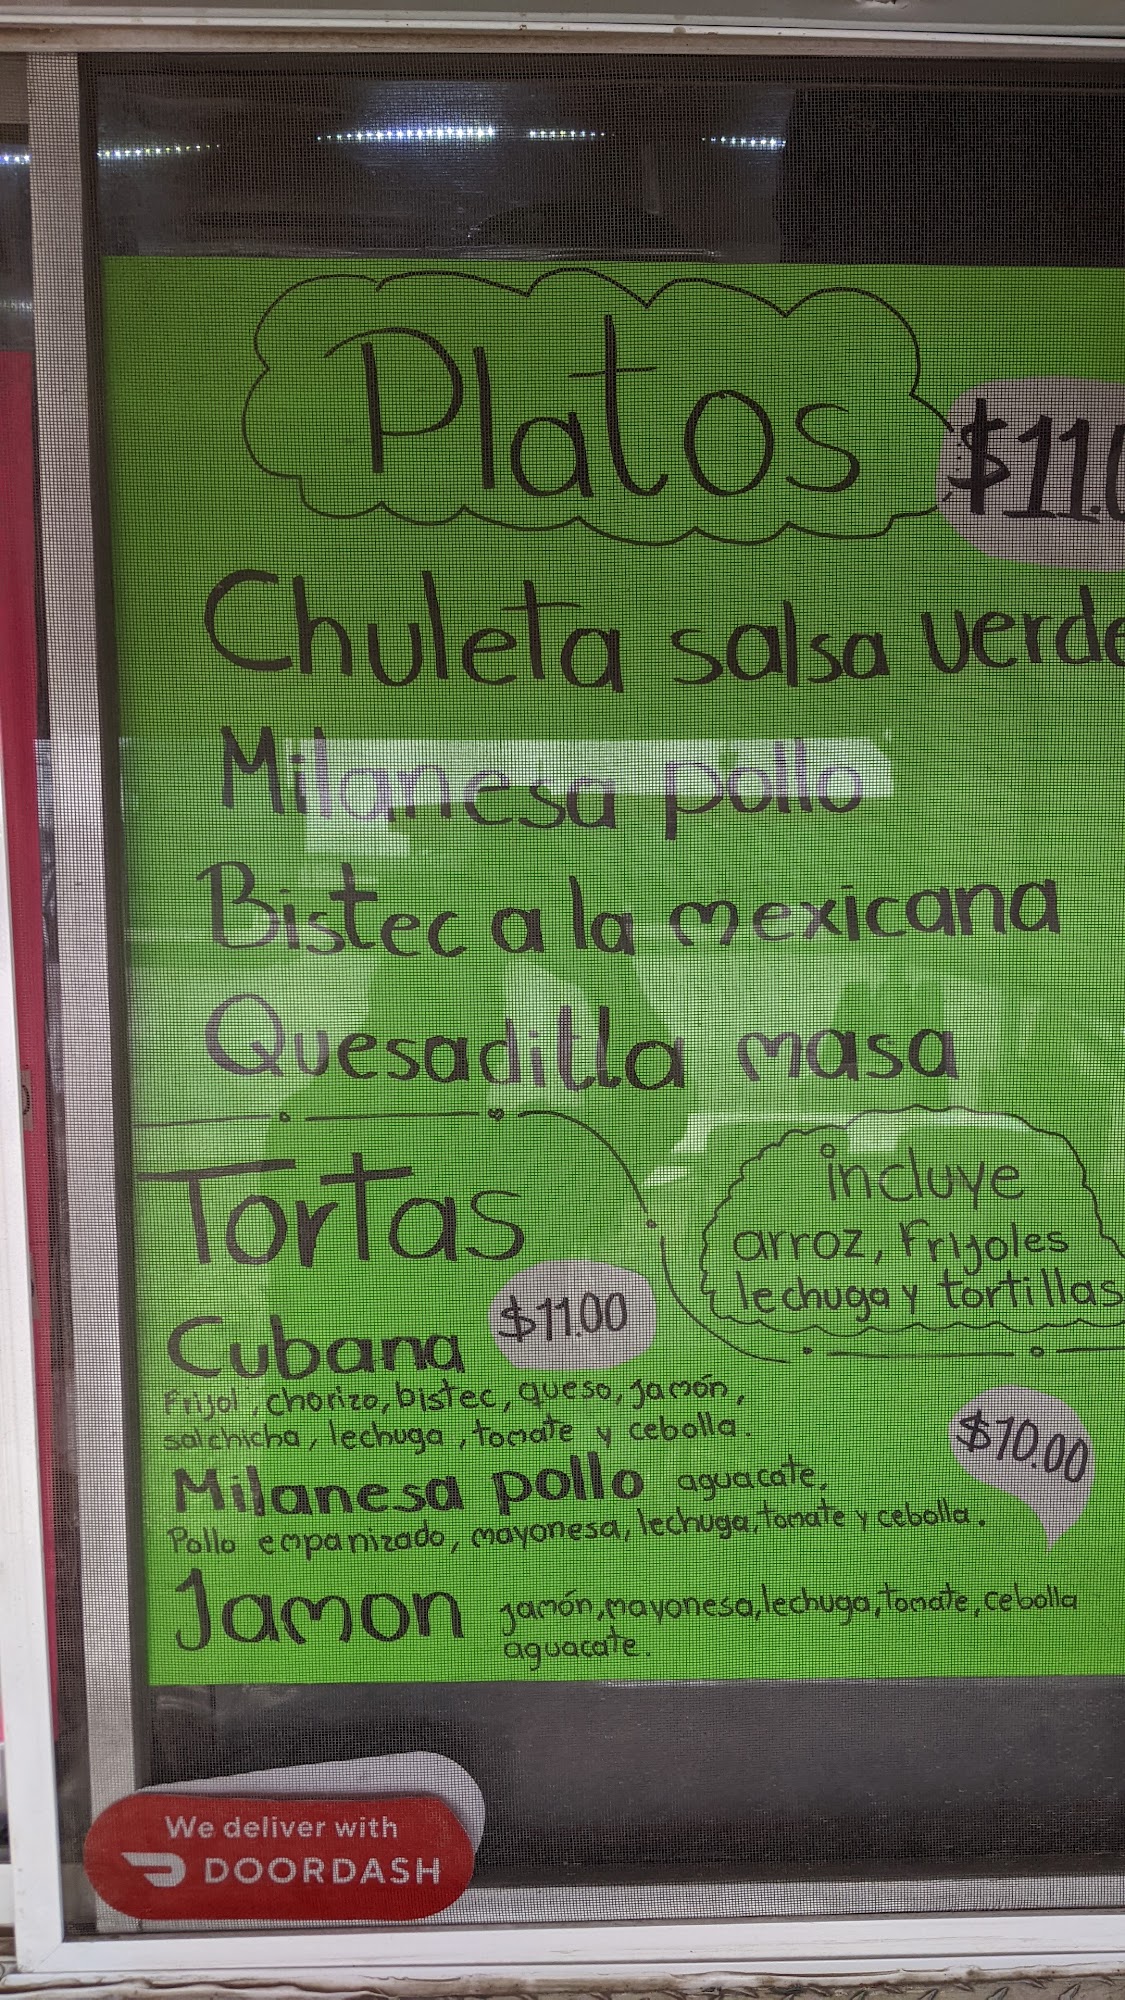 Platos
$11.0
Chuleta salsa verde
Milanesa pollo
Bistec a la mexicana
Quesadilla masa
incluye
arroz, Frijoles
lechuga y tortillas
Tortas
Cubana $11.00
Frijol, chorizo, bistec, queso, jamón,
salchicha, lechuga, tomate y cebolla.
$10.00
Milanesa pollo aguacate,
Pollo empanizado, mayonesa, lechuga, tomate y cebolla.
Jamon jamón, mayonesa, lechuga, tomate, cebolla
aguacate.
We deliver with
DOORDASH